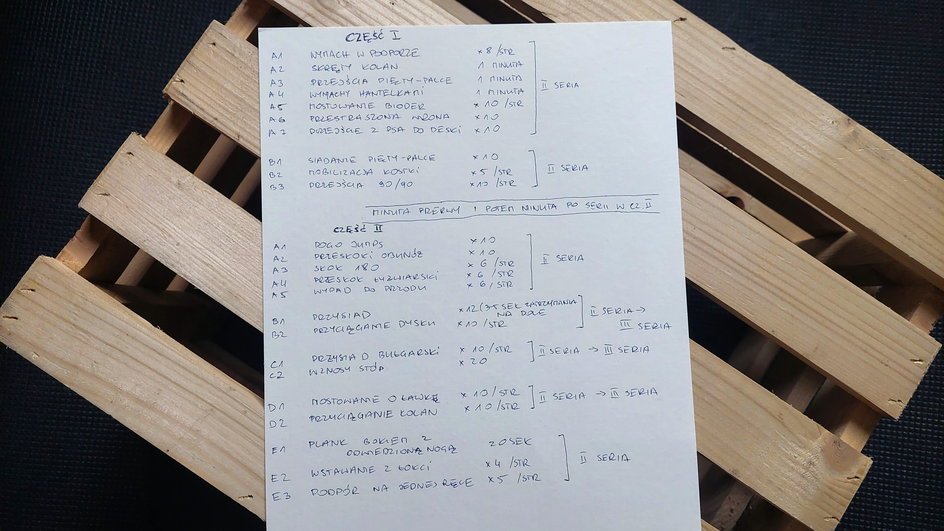 CZĘŚĆ I
A1 WYMACH W PODPORZE x 8 /STR
A2 SKRĘTY KOLAN 1 MINUTA
A3 PRZEJŚCIA PIĘTY-PALCE 1 MINUTA
A4 WYMACHY HANTELKAMI 1 MINUTA
A5 MOSTOWANIE BIODER x 10 /STR
II SERIA
A6 PRZESTRASZONA WRONA x 10
A7 PRZEJŚCIE Z PSA DO DESKI x 10
B1 SIADANIE PIĘTY-PALCE x 10
B2 MOBILIZACJA KOSTKI x 5 /STR
II SERIA
B3 PRZEJŚCIA 90/90 x 10 /STR
MINUTA PRZERWY I POTEM MINUTA PO SERII W CZ. II
CZĘŚĆ II
A1 POGO JUMPS x 10
A2 PRZESKOKI OBUNÓŻ x 10
A3 SKOK 180 x 6 /STR
II SERIA
A4 PRZESKOK ŁYŻWIARSKI x 6 /STR
A5 WYPAD DO PRZODU x 6 /STR
B1 PRZYSIAD x 12 (3-5 SEK ZATRZYMANIA NA DOLE
B2 PRZYCIĄGANIE DYSKU x 10 /STR
II SERIA → III SERIA
C1 PRZYSIAD BUŁGARSKI x 10 /STR
II SERIA → III SERIA
C2 WZNOSY STÓP x 20
D1 MOSTOWANIE O ŁAWKĘ x 10 /STR
II SERIA → III SERIA
D2 PRZYCIĄGANIE KOLAN x 10 /STR
E1 PLANK BOKIEM Z ODWIEDZIONĄ NOGĄ 20 SEK
E2 WSTAWANIE Z ŁOKCI x 4 /STR
II SERIA
E3 PODPÓR NA JEDNEJ RĘCE x 5 /STR